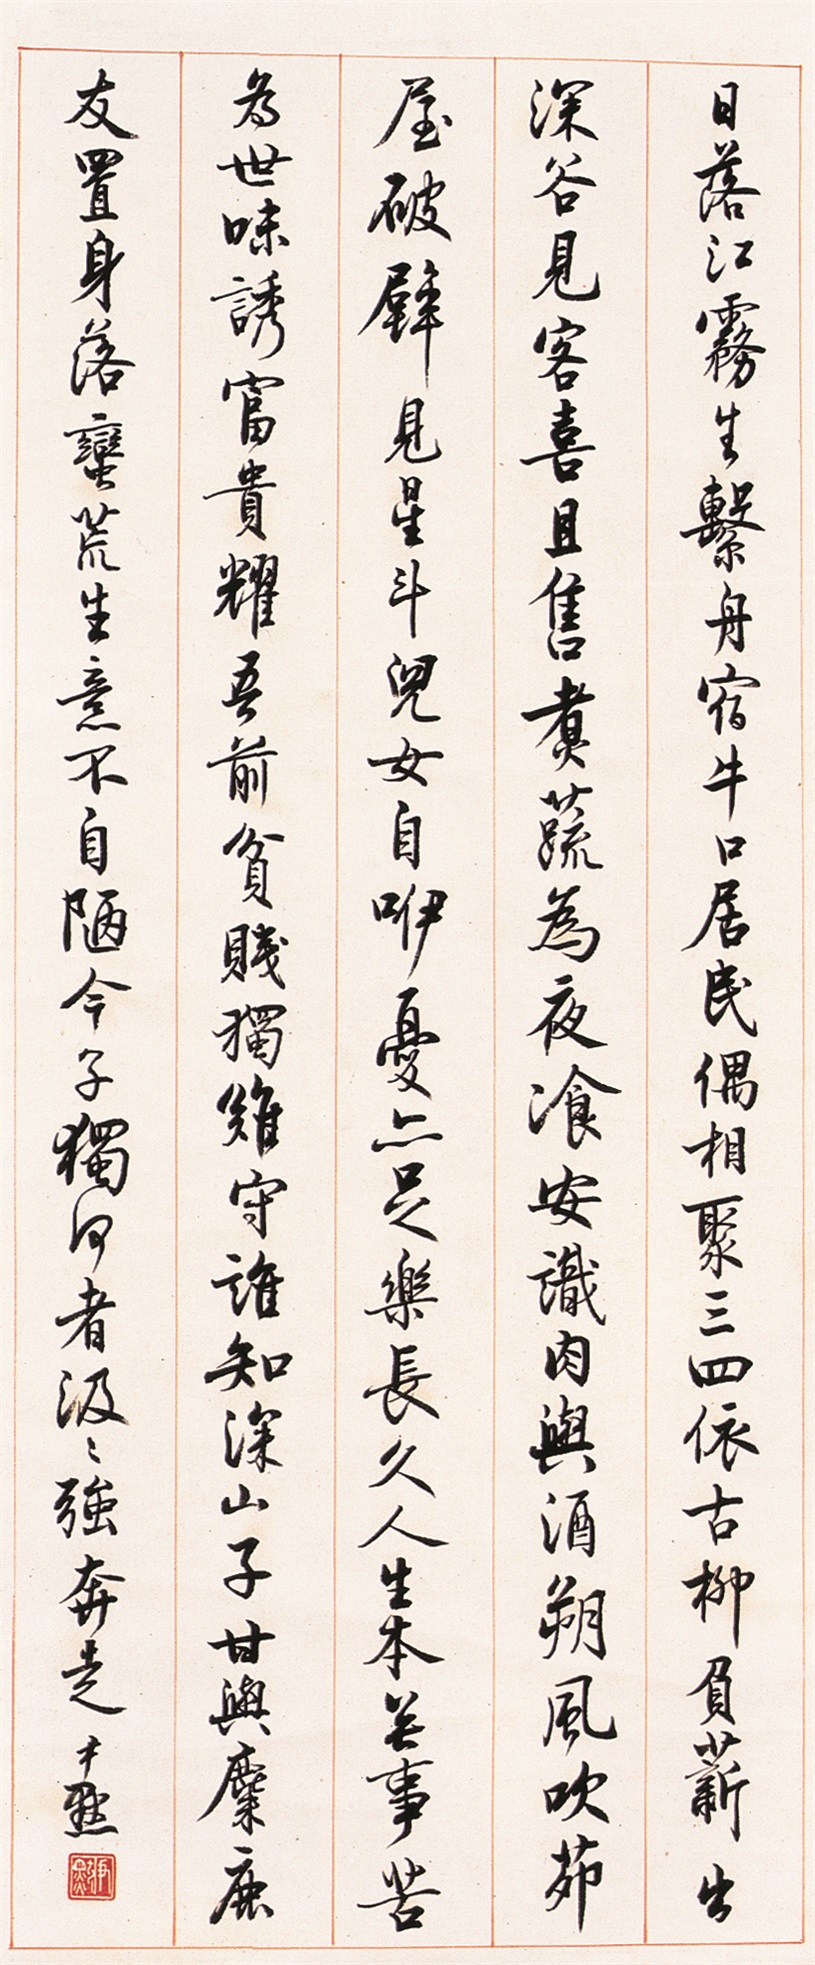 日落江霧生繫舟宿牛口居民偶相聚三四依古柳負薪出
深谷見客喜且售煑蔬為夜飡安識肉與酒朔風吹茆
屋破壁見星斗兒女自咿憂亦足樂長久人生本無事苦
為世味誘富貴耀吾前貧賤獨難守誰知深山子甘與麋鹿
友置身落蠻荒生意不自陋今子獨何者汲〻強奔走尹默